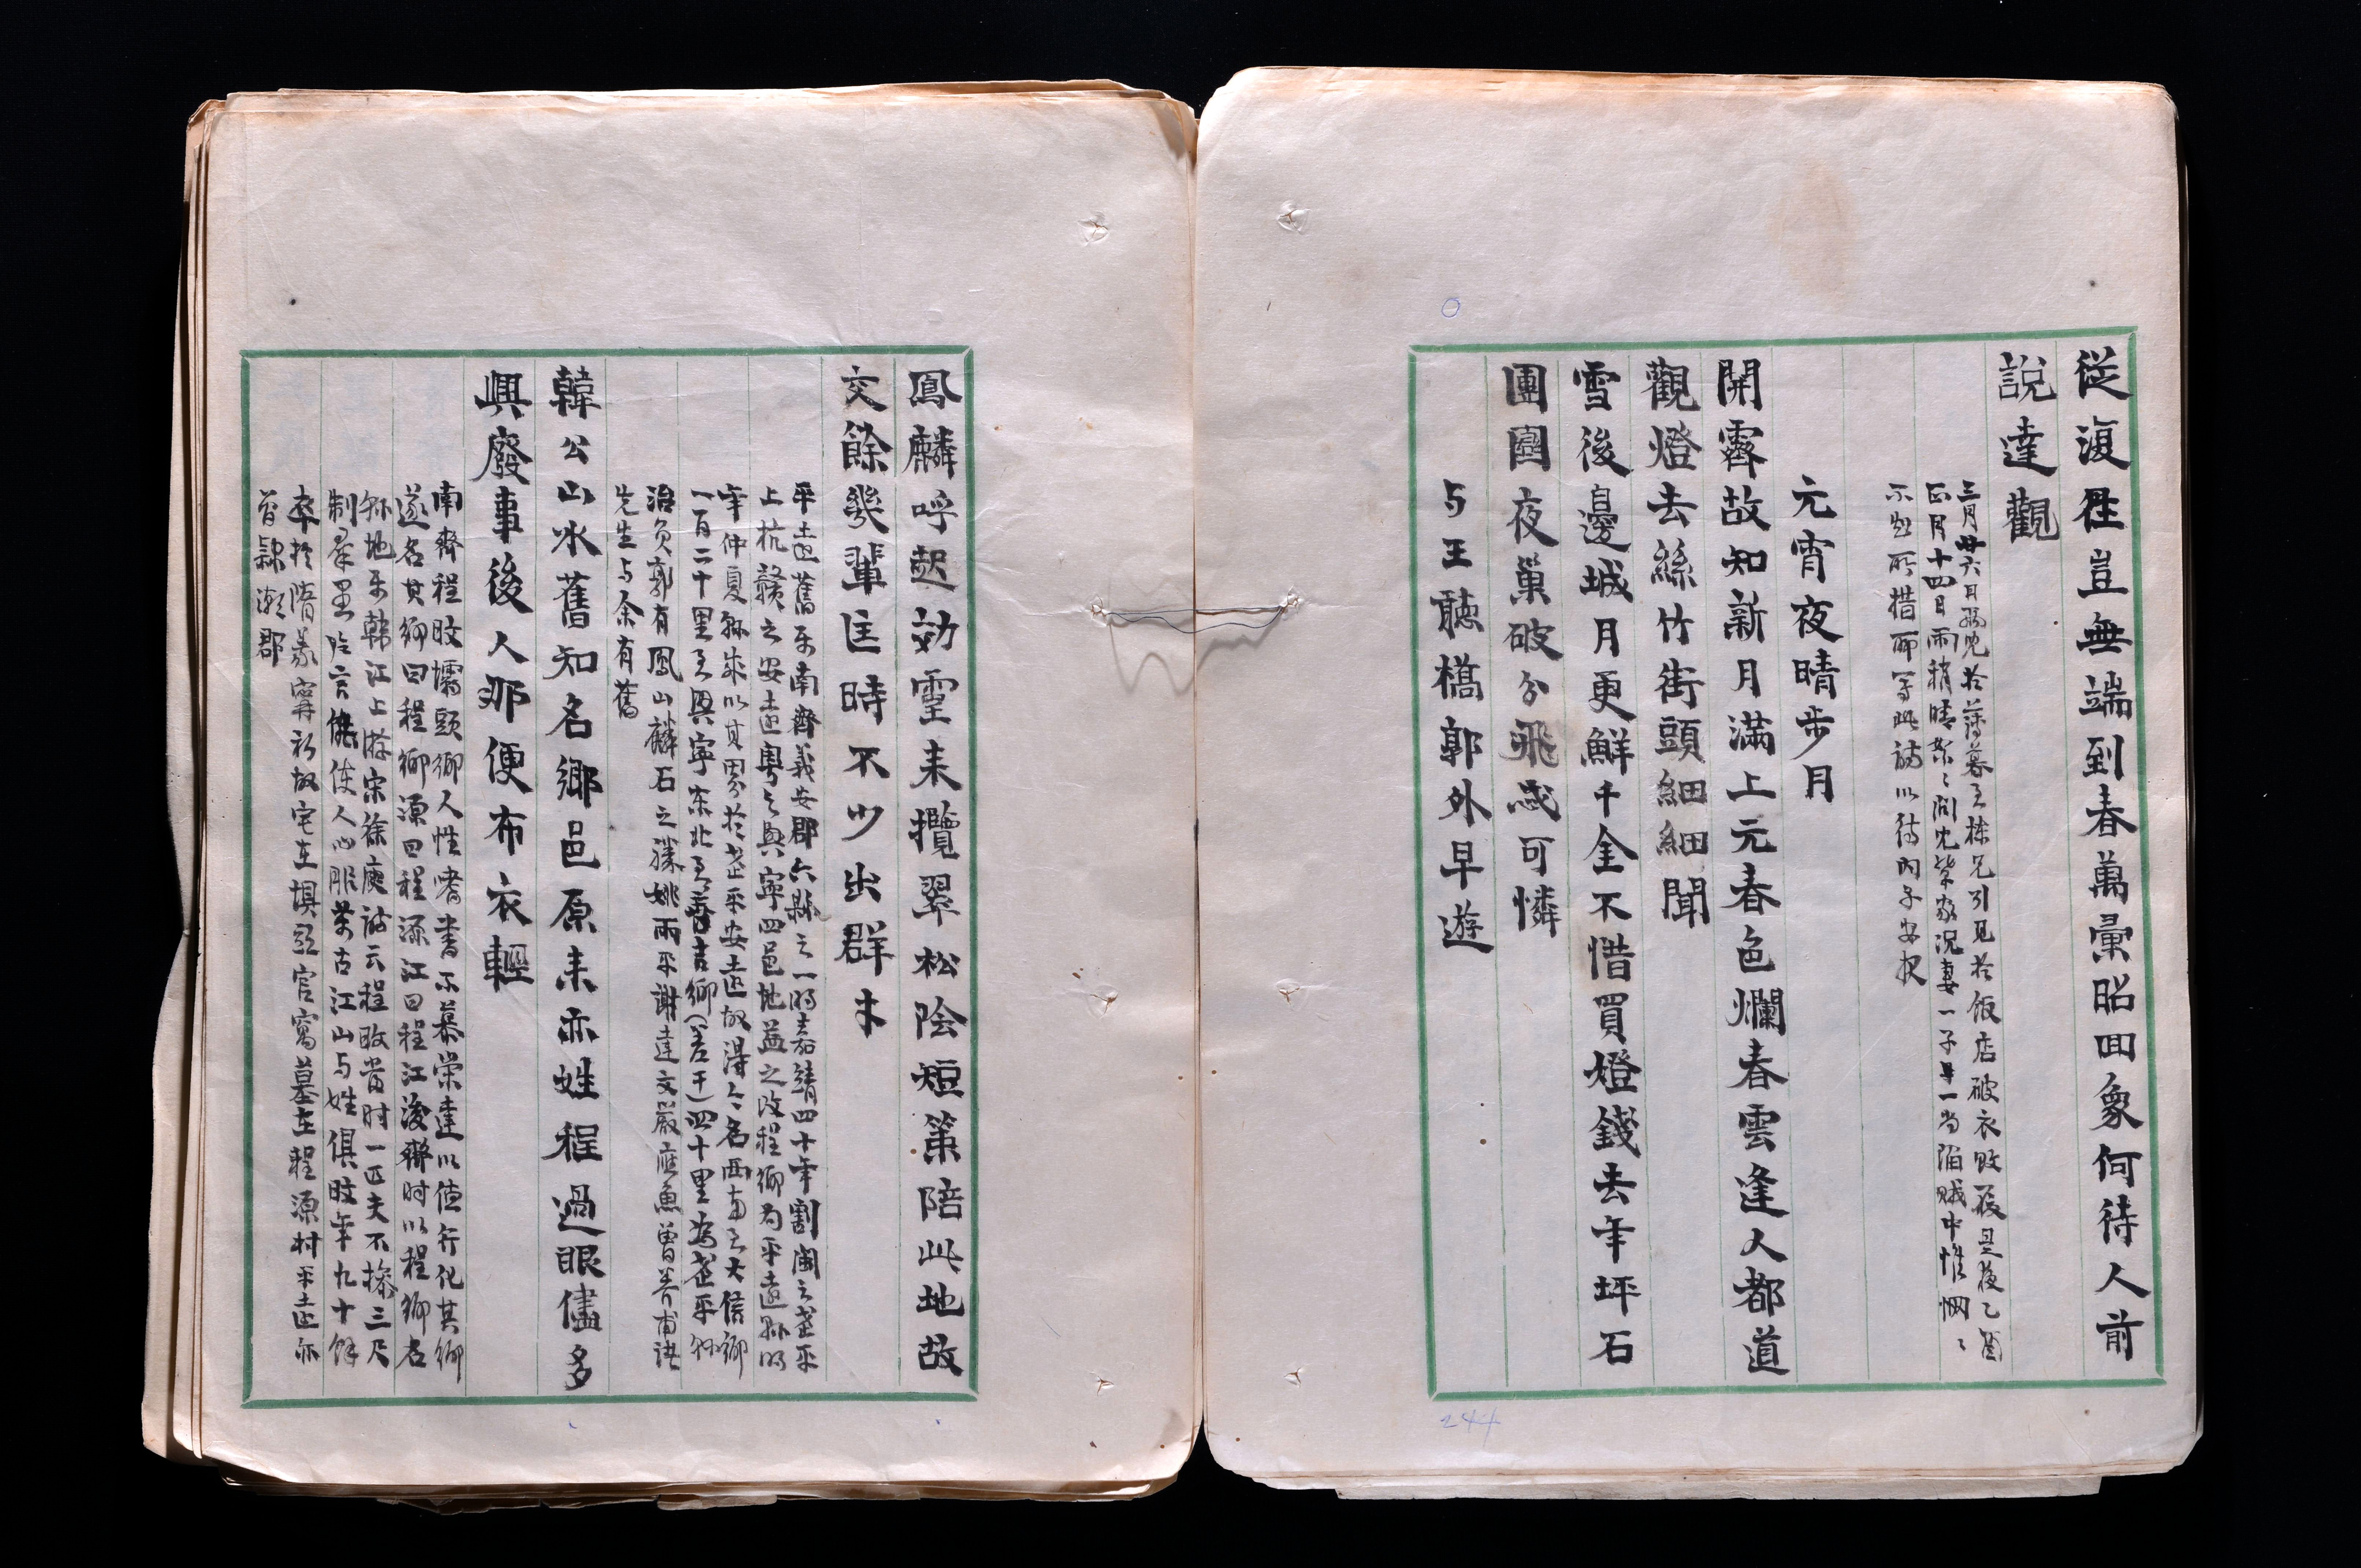 從復往豈無端到春萬彙昭回象何待人前
說達觀
三月廿六日弼兒於薄暮至棟兄引見於飯店破衣敗履且後乙酋
正月十四日雨稍晴絮〻問兒輩家況妻一子早一尚陷賊中惟惘〻
不知所措爾
元宵夜晴步月
開霽故知新月滿上元春色爛春雲逢人都道
觀燈去絲竹街頭細細聞
雪後邊城月更鮮千金不惜買燈錢去年坪石
團圓夜巢破分飛感可憐
与王聽橋郭外早遊
244
鳳麟呼起効靈来攬翠松陰短策陪此地故
交餘幾輩匡時不少出群才
平遠舊乐南齊義安郡六縣之一明嘉靖四十年割閩之武平
上杭贛之安遠粤之興寧四邑地益之改程鄉為平遠縣明
年仲夏縣成以其界於武平安遠故得今名西南至大信鄉
一百二十里至興寧东北至善吉鄉(差干)四十里為武平縣
治負郭有鳳山麟石之勝姚雨平謝達文嚴應魚曾養甫諸
先生与余有舊
韓公山水舊知名鄉邑原来亦姓程過眼儘多
興廢事後人那便布衣輕
南齊程旼壩頭鄉人性嗜書不慕榮達以德行化其鄉
遂名其鄉曰程鄉源曰程源江曰程江後齊时以程鄉名
縣地乐韓江上游宋徐庾詩云程旼當时一匹夫不操三尺
制羣愚片言能使人心服萬古江山与姓俱旼年九十餘
卒於隋義寧初故宅在壩頭官窩墓在程源村平遠亦
曾隸潮郡